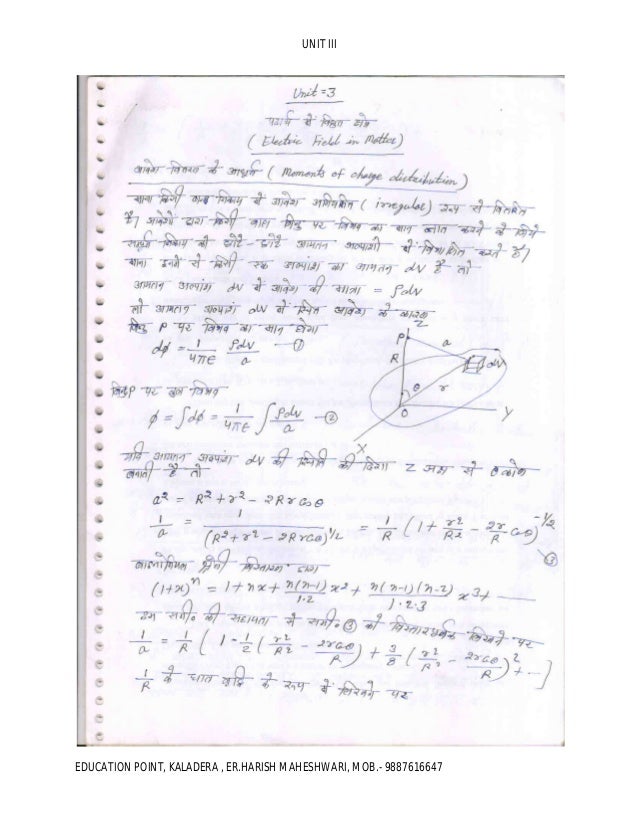 UNIT III
Unit = 3
पदार्थ में विद्युत क्षेत्र
( Electric Field in Matter)
आवेश वितरण के आघूर्ण ( Moments of charge distribution )
माना किसी निकाय में आवेश अनियमित ( irregular) रूप से वितरित
है। आवेशों द्वारा किसी बाह्य बिन्दु पर विभव का मान ज्ञात करने के लिये
सम्पूर्ण निकाय को छोटे - छोटे आयतन अल्पांशों में विभाजित करते हैं।
माना इनमें से किसी एक अल्पांश का आयतन dV है तो
आयतन अल्पांश dV में आवेश की मात्रा = ρdv
तो आयतन अल्पांश dV में स्थित आवेश के कारण
बिन्दु P पर विभव का मान होगा
dφ = 1/4πε ρdv/a —①
बिन्दु P पर कुल विभव
φ = ∫dφ = 1/4πε ∫ ρdv/a —②
Z
P
a
dv
R
θ
r
O
Y
X
यदि आयतन अल्पांश dV की स्थिति की दिशा Z अक्ष से θ कोण
बनाती है तो
a² = R² + r² - 2Rr Cosθ
1/a = 1/(R² + r² - 2Rr Cosθ)^1/2 = 1/R (1 + r²/R² - 2r/R Cosθ)^-1/2 —③
बाइनोमियल श्रेणी विस्तारण द्वारा
(1+x)^n = 1 + nx + n(n-1)/1·2 x² + n(n-1)(n-2)/1·2·3 x³ + ------
इस समी० की सहायता से समी० ③ को विस्तारपूर्वक लिखने पर
1/a = 1/R [ 1 - 1/2 ( r²/R² - 2rCosθ/R ) + 3/8 ( r²/R² - 2rCosθ/R )² + --- ]
1/R के घात वृद्धि के रूप में लिखने पर
EDUCATION POINT, KALADERA , ER.HARISH MAHESHWARI, MOB.- 9887616647